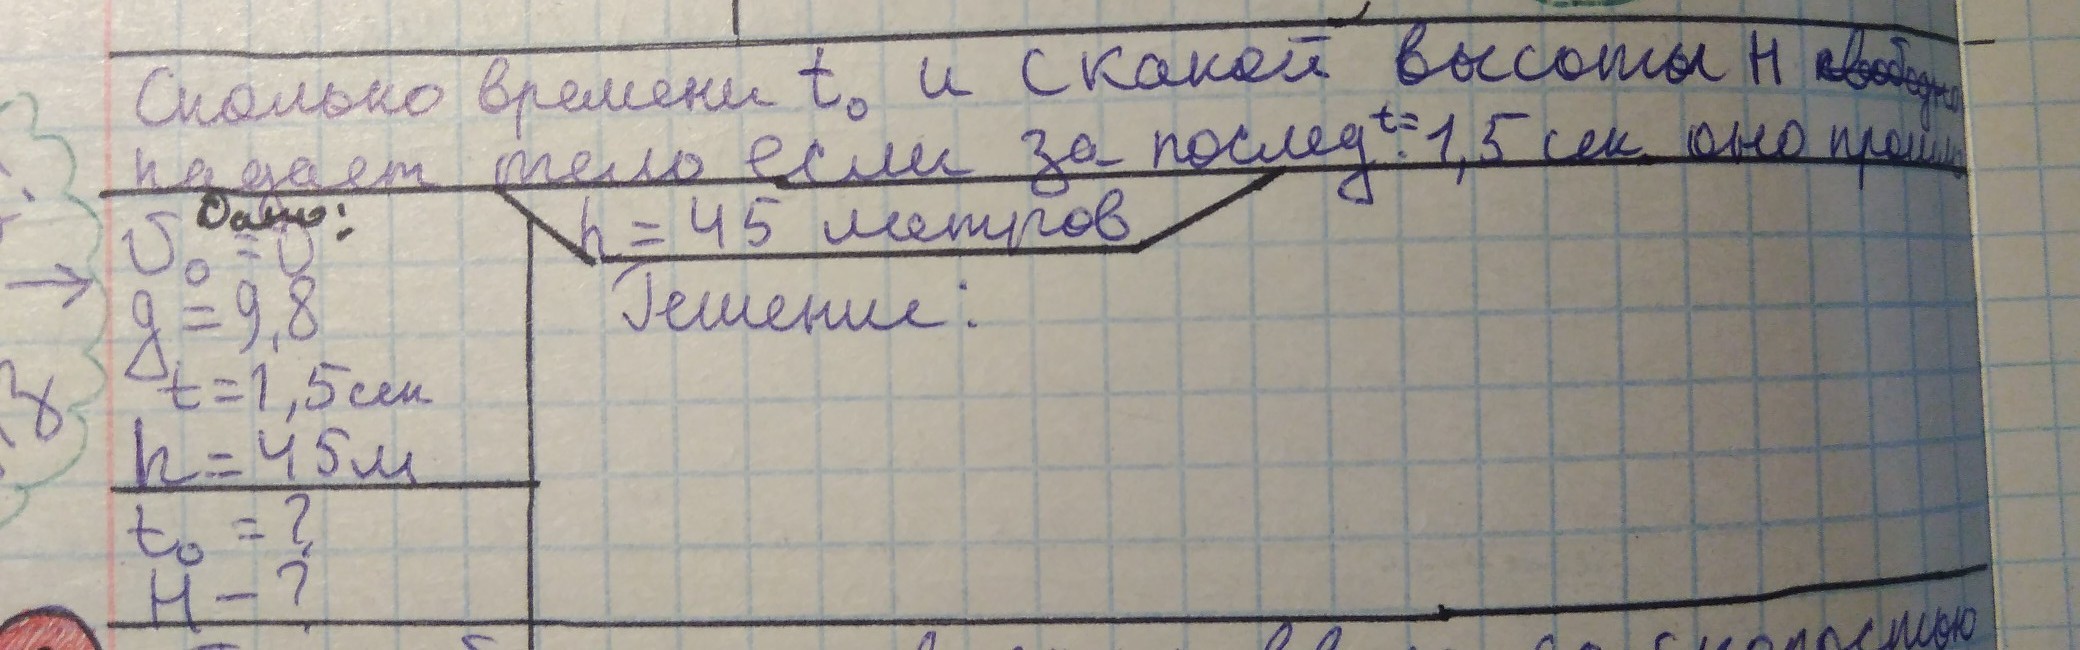 Сколько времени t₀ и с какой высоты H свободно
падает тело если за послед t=1,5 сек. оно прошло
h = 45 метров
Дано:
υ₀ = 0
g = 9,8
t=1,5сек
h = 45м
t₀ = ?
H - ?
Решение: